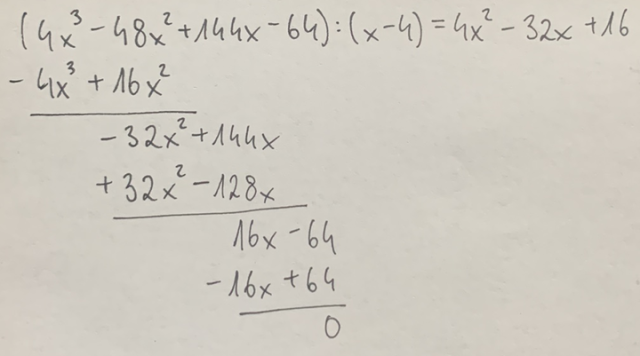 (4x³ - 48x² + 144x - 64) : (x - 4) = 4x² - 32x + 16
- 4x³ + 16x²
- 32x² + 144x
+ 32x² - 128x
16x - 64
- 16x + 64
0